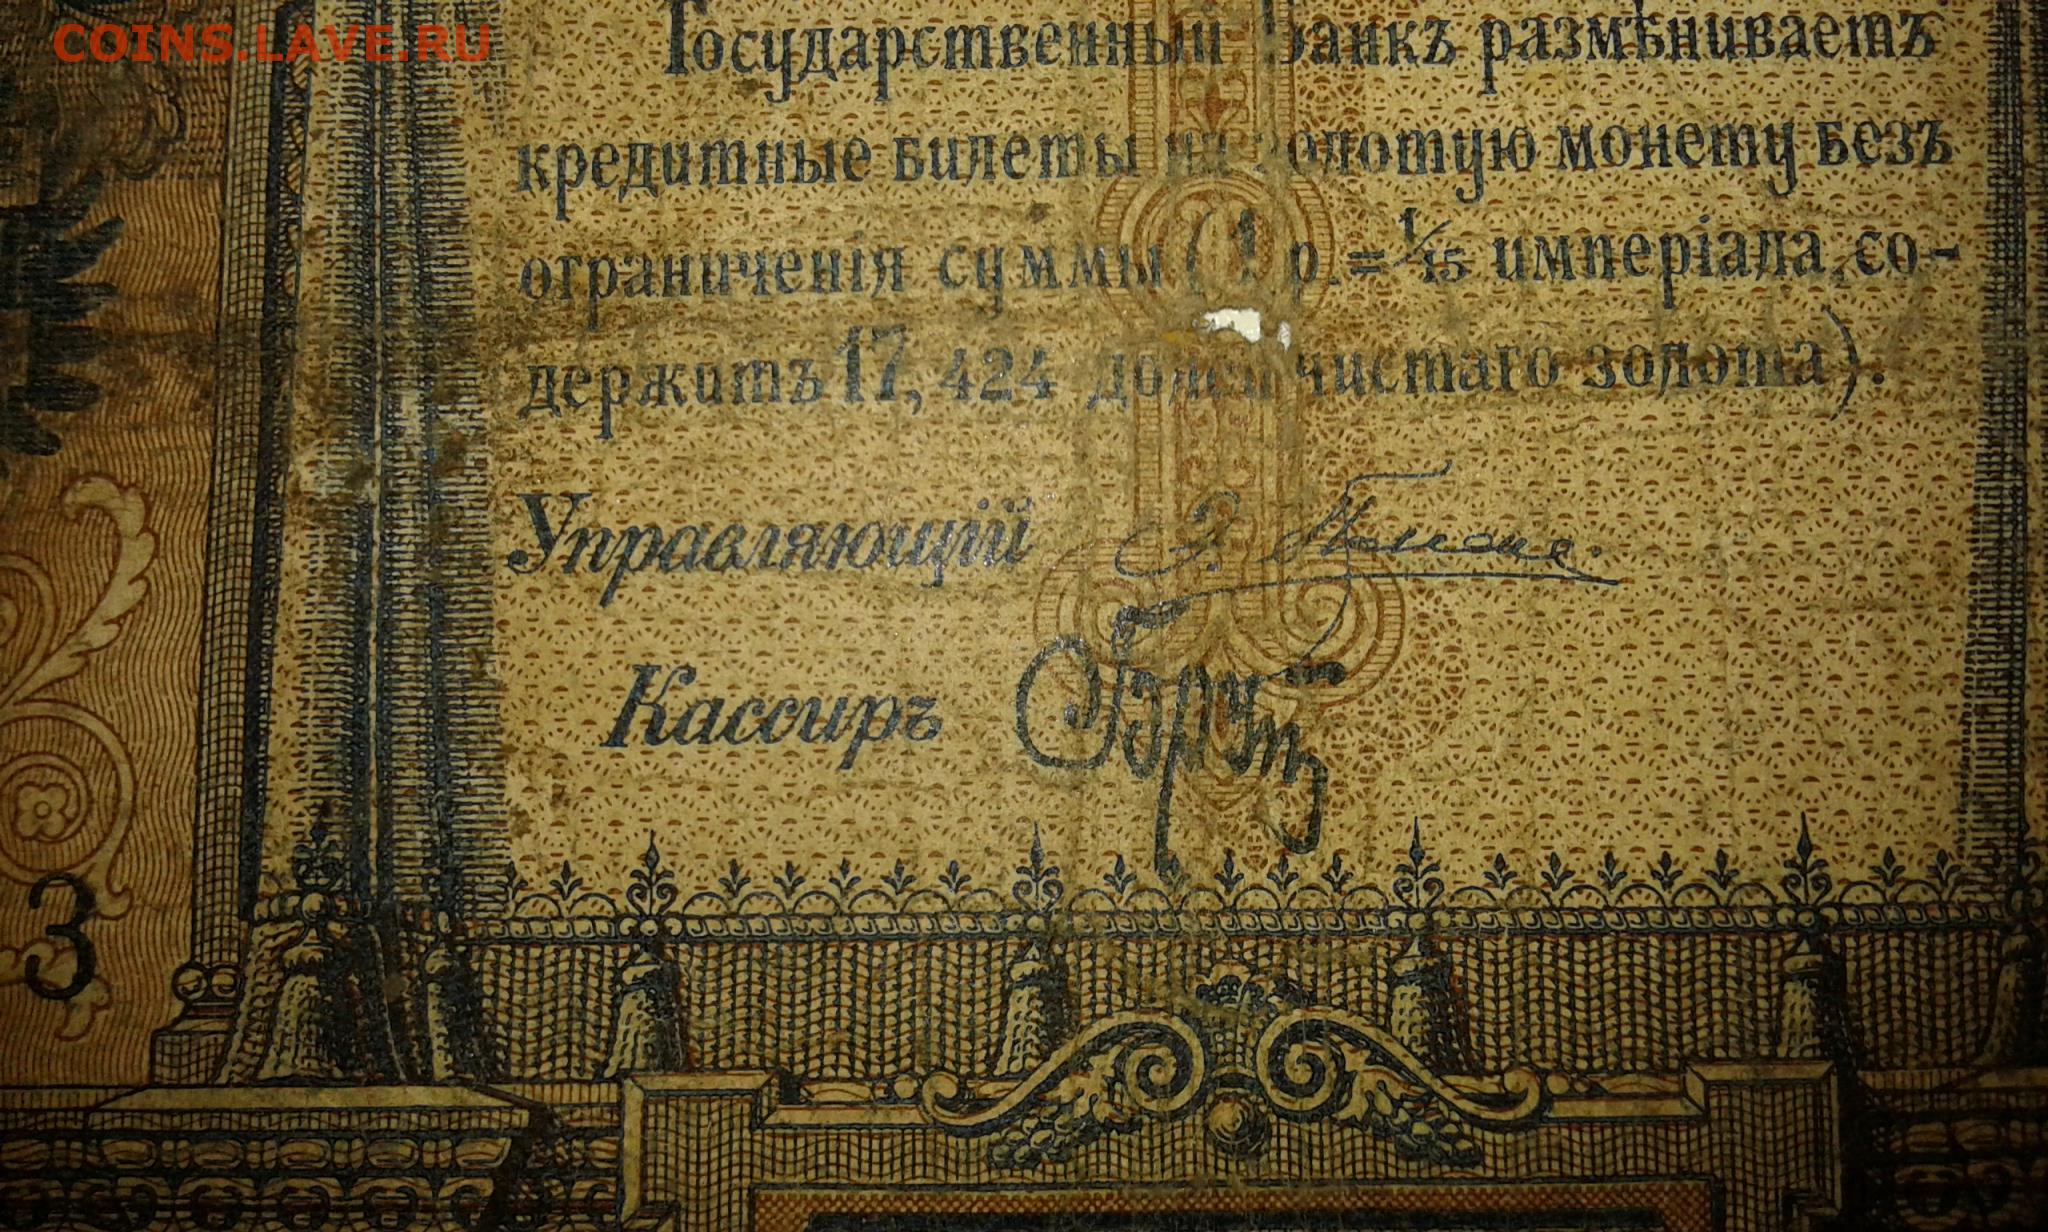 COINS.LAVE.RU
Государственный Банкъ размѣниваетъ
кредитные билеты на золотую монету безъ
ограниченія суммы (1 р. = 1/15 имперіала, со-
держитъ 17,424 долей чистаго золота).
Управляющій
Кассиръ
3